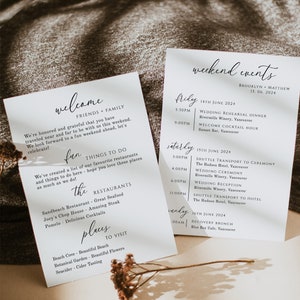 welcome
FRIENDS + FAMILY
We're honored and grateful that you have
traveled near and far to be with us this weekend.
We look forward to a fun weekend ahead, let's
celebrate!
fun THINGS TO DO
We've created a list of our favourite restaurants
and things to do here - hope you love these places
as much as we do!
the RESTAURANTS
Sandbeach Restaurant - Great Seafood
Joey's Chop House - Amazing Steak
Pronto - Delicious Cocktails
places TO VISIT
Beach Cove - Beautiful Beach
Botanical Garden - Beautiful Flowers
- Cider Tasting
weekend events
BROOKLYN + MATTHEW
15. 06. 2024
friday 14TH JUNE 2024
5:00PM WEDDING REHEARSAL DINNER
Riverside Winery, Vancouver
8:00PM WELCOME COCKTAIL HOUR
Vancouver
saturday 15TH JUNE 2024
SHUTTLE TRANSPORT TO CEREMONY
The Hudson Hotel, Vancouver
WEDDING CEREMONY
Riverside Winery, Vancouver
WEDDING RECEPTION
Riverside Winery, Vancouver
SHUTTLE TRANSPORT TO HOTEL
The Hudson Hotel, Vancouver
JUNE 2024
RECOVERY BRUNCH
Vancouver